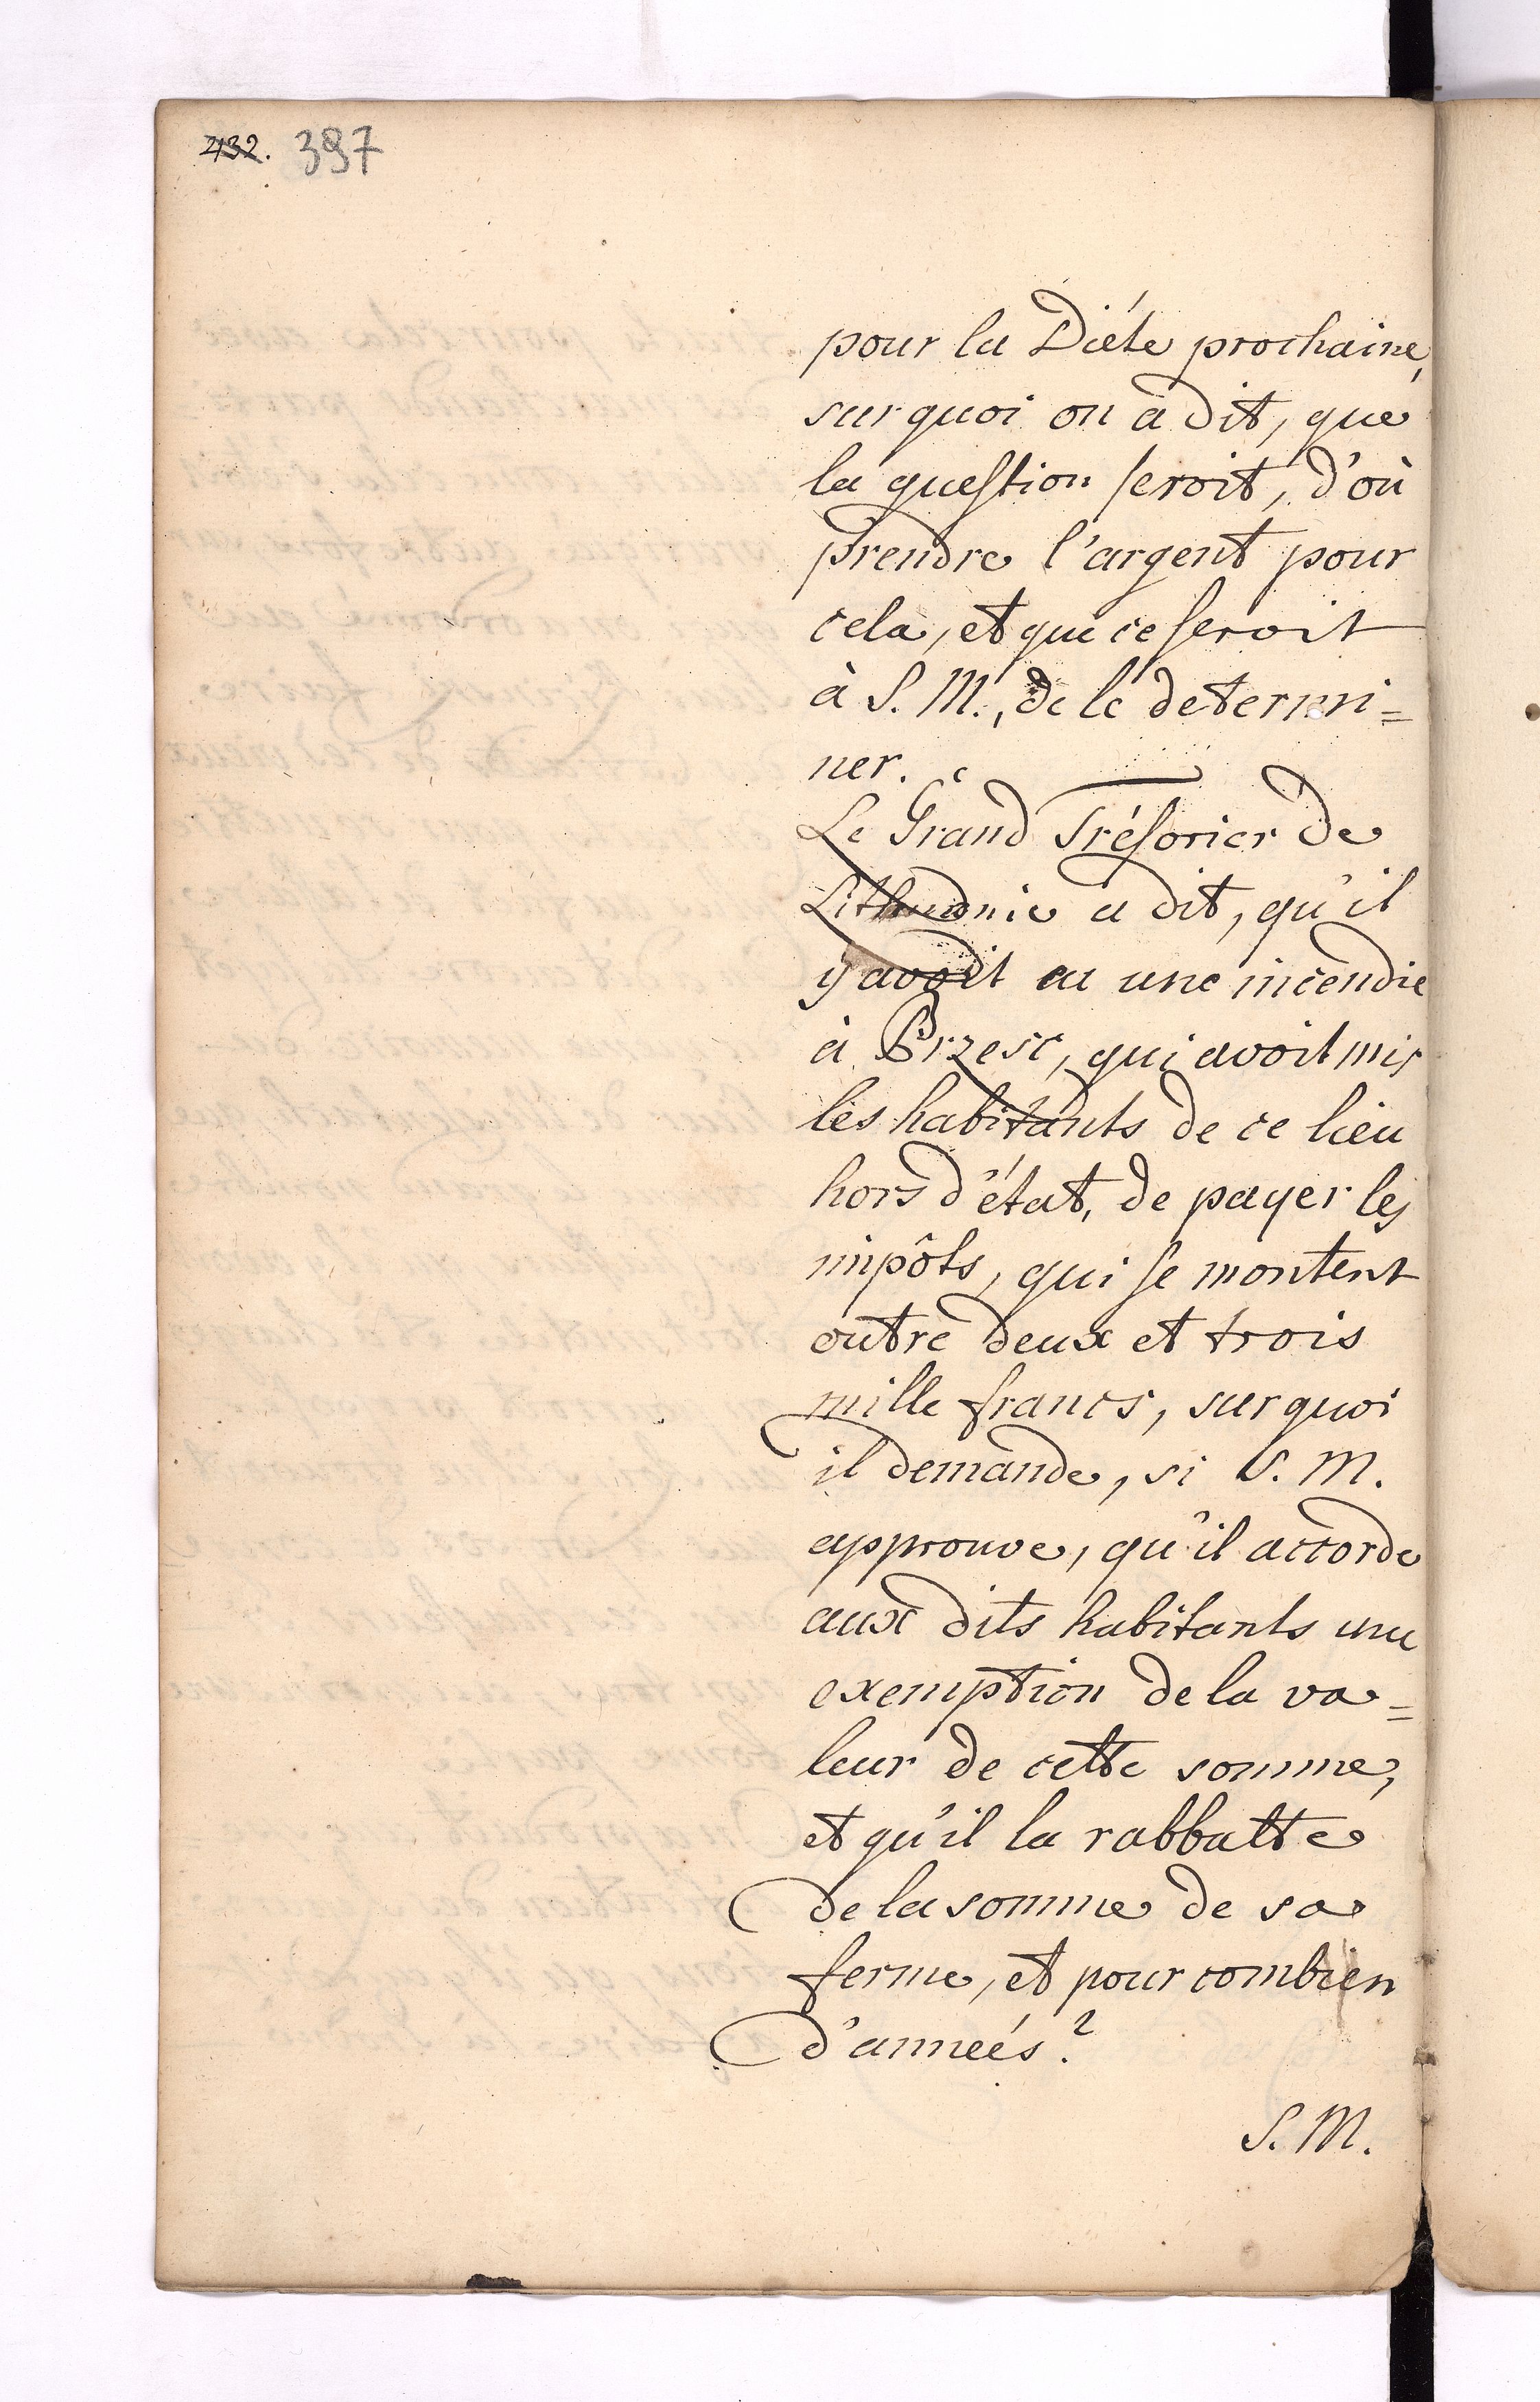 432. 397
pour la Diéte prochaine,
surquoi on a dit, que
la question seroit, d'où
prendre l'argent pour
cela, et que ce seroit
à S. M., de le determi=
ner.
Le Grand Trésorier de
Lithuanie a dit, qu'il
y avoit eu une incendie
à Brzesc, qui avoit mis
les habitants de ce lieu
hors d'état, de payer les
impôts, qui se montent
outre deux et trois
mille francs, surquoi
il demande, si S. M.
approuve, qu'il accorde
aux dits habitants une
exemption de la va=
leur de cette somme,
et qu'il la rabbatte
de la somme de sa
ferme, et pour combien
d'anneés?
S. M.